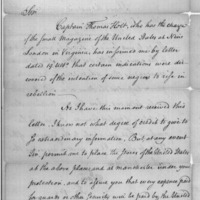 Sir
Captain Thomas Holt, who has the charge
of the small Magazine of the United States at New
London in Virginia, has informed me by letter
dated 19 ulto that certain indications were dis-
covered of the intention of some negroes to rise in
rebellion.
As I have this moment received this
letter, I know not what degree of credit to give to
so extraordinary information. But at any event
Sir permit me to place the stores of the United States
at the above place, and at manchester, under your
protection, and to assure you that any expence paid
for guards or other security will be paid by the